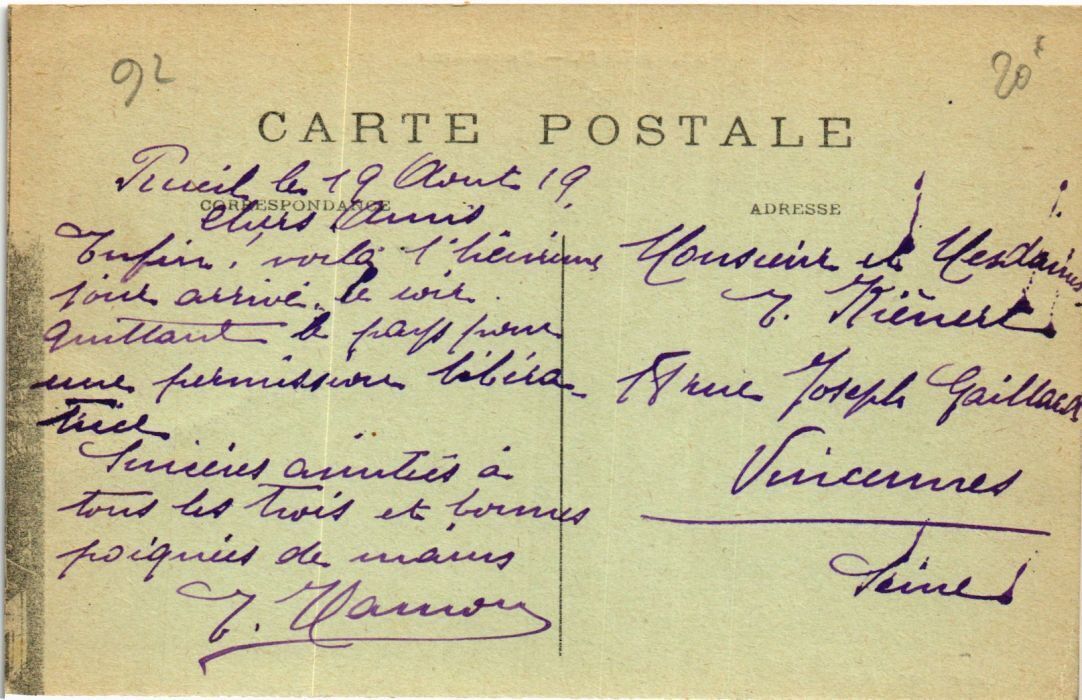 92
20F
CARTE POSTALE
Rueil le 19 Aout 19
CORRESPONDANCE
ADRESSE
Chers Amis
Enfin, voilà l'heureux
jour arrivé, le soir
quittant le pays pour
une permission libéra-
trice
Sincères amitiés à
tous les trois et bonnes
poignées de mains
Hamon
Monsieur et Mesdames
Kiénert
18 rue Joseph Gaillard
Vincennes
Seine